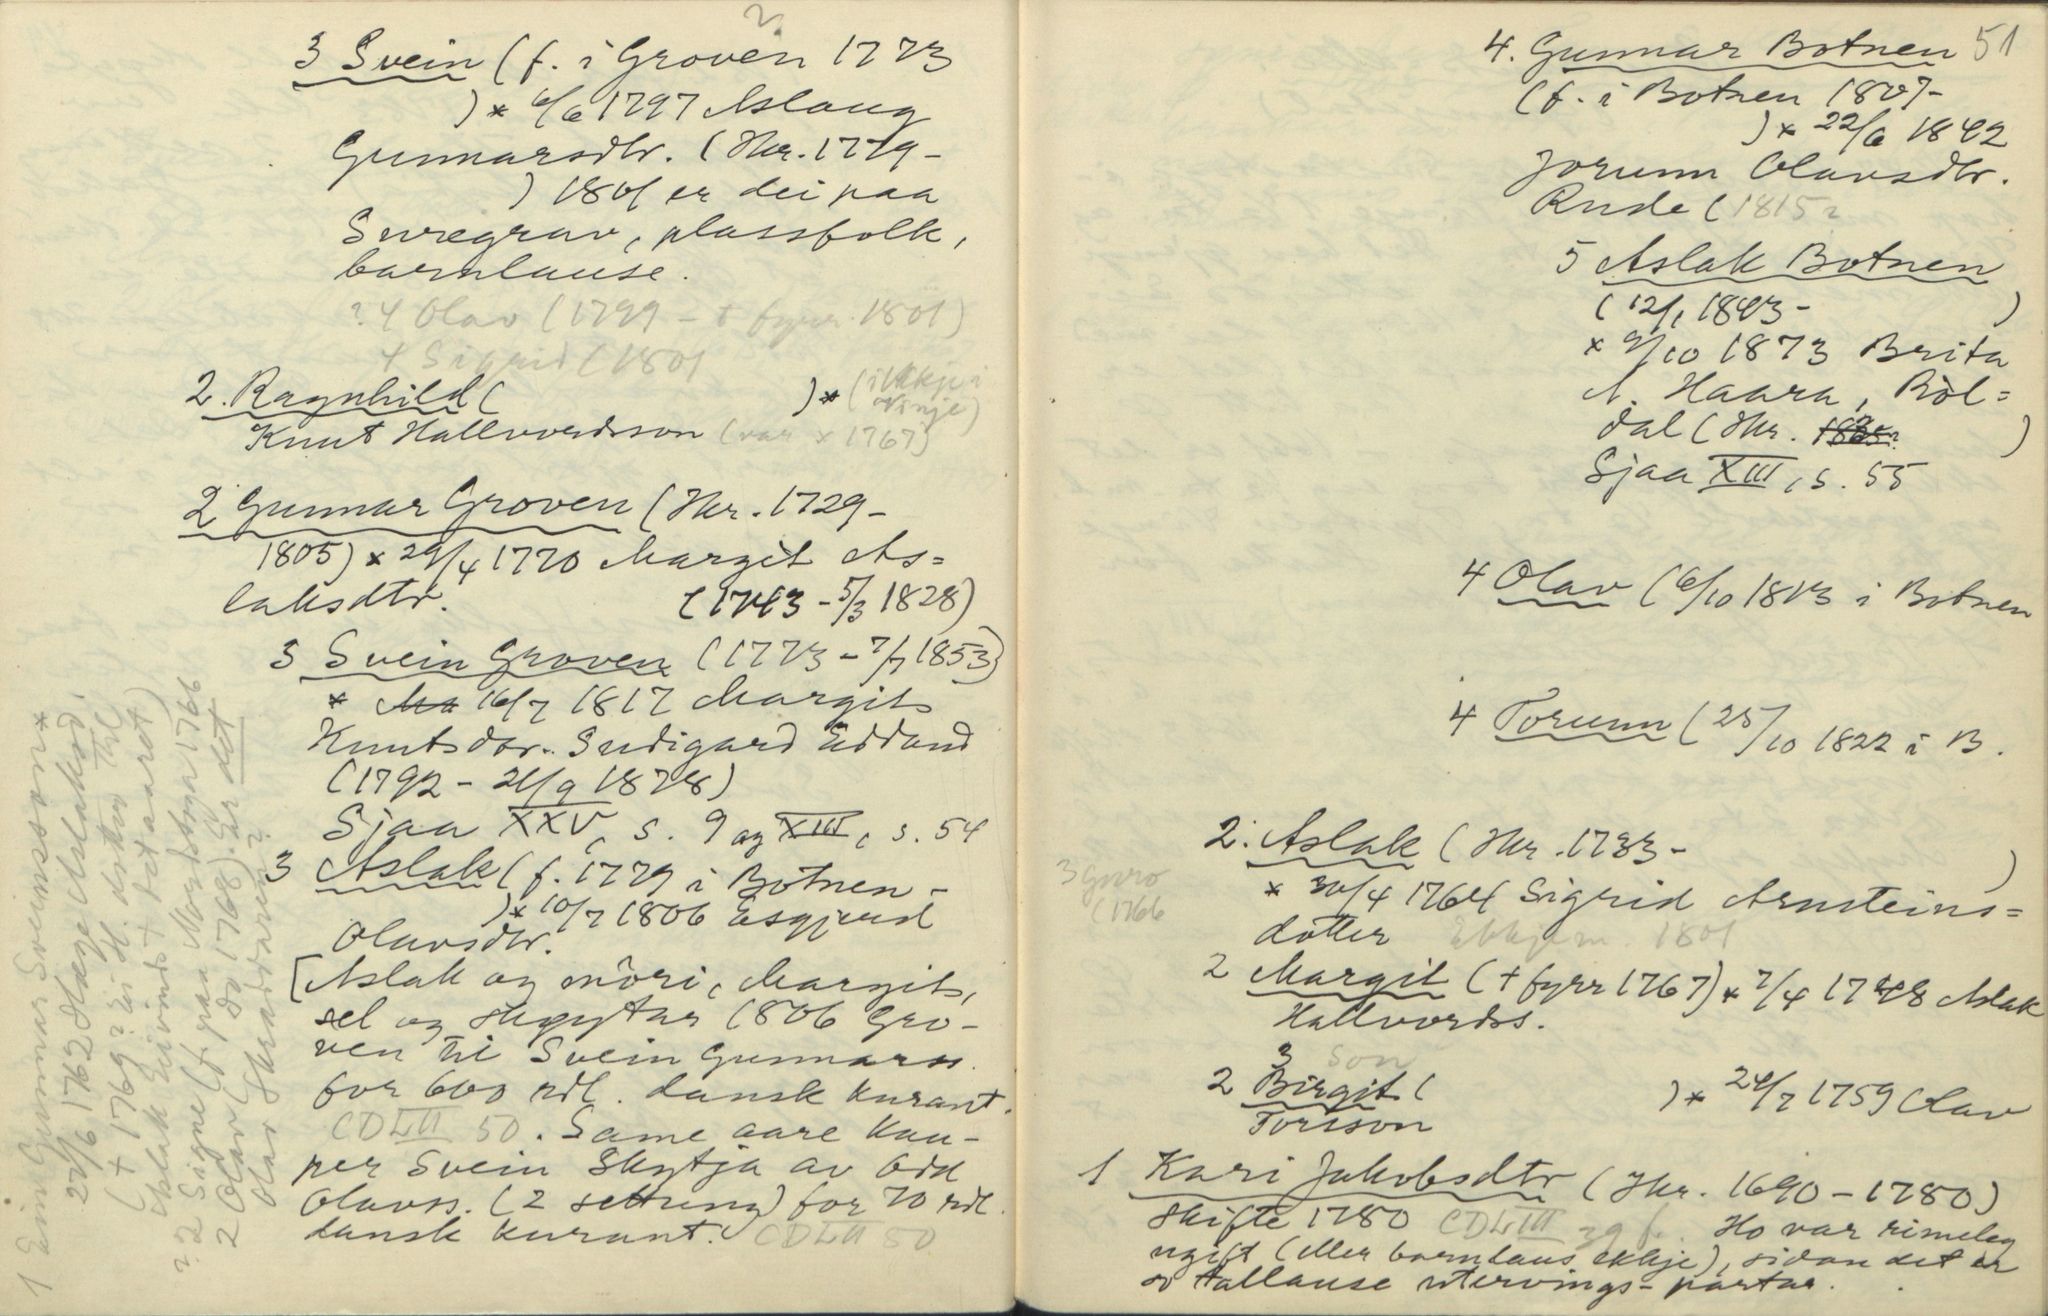 3 Svein (f. i Groven 1773
) * 6/6 1797 Aslaug
Gunnarsdtr. (Kr. 1779 -
) 1801 er dei paa
Suregrav, plassfolk,
barnlause.
? 4 Olav (1799 - + fyrr 1801)
4 Sigrid (1801
2. Ragnhild (          ) * (ikkje i
Vinje)
Knut Hallvordsson (var x 1767)
2 Gunnar Groven (Kr. 1729 -
1805) * 29/4 1770 Margit As=
laksdtr. (1743 - 5/3 1828)
3 Svein Groven (1773 - 7/7 1853)
* 16/7 1817 Margit
Knutsdtr. Sudigard Edland
(1792 - 21/9 1878)
Sjaa XXV, s. 9 og XIII, s. 54
3 Aslak (f. 1779 i Botnen -
) * 10/7 1806 Asgjerd
Olavsdtr.
[Aslak og mori, Margit,
sel og skøytar 1806 Gro-
ven til Svein Gunnarss.
for 600 rdl. dansk kurant.
CDLII 50. Same aare kau-
per Svein Skytja av Odd
Olavss. (2 setting) for 70 rdl.
dansk kurant. CDLII 50
1 Gunnar Sveinsson *
29/6 1762 Hæge Aslaksd.
(+ 1769? Ei H. dotter til
Aslak Eivinds + det aaret)
? 2 Signe (f. paa 1766
2 Olav ( do 1768). Er det
Olav Skraddaren?
51
4. Gunnar Botnen
(f. i Botnen 1807 -
) * 22/6 1842
Jorunn Olavsdtr.
Rude (1815?
5 Aslak Botnen
(12/1 1843 -          )
* 9/10 1873 Brita
A. Haara, Röl=
dal (Kr. 1825?          )
Sjaa XIII, s. 55
4 Olav (6/10 1813 i Botnen
4 Torunn (25/10 1822 i B.
2. Aslak (Kr. 1733 -          )
* 30/4 1764 Sigrid Arnsteins=
dotter Ekkjem. 1801
3 Guro
(1766
2 Margit (+ fyrr 1767) * 7/4 1748 Aslak
Hallvordss.
3 son
2 Birgit (          ) * 24/7 1759 Olav
Torsson
1 Kari Jakobsdtr (Kr. 1690 - 1780)
skifte 1780 CDLIII 29 f. Ho var rimeleg
ugift (eller barnlaus ekkje), sidan det er
so tallause utervings-partar.